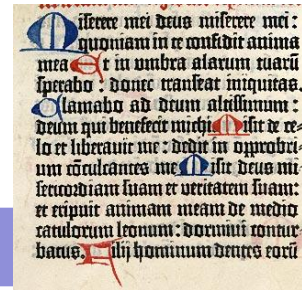 Miserere mei deus miserere mei :
quoniam in te confidit anima
mea Et in vmbra alarum tuarū
sperabo : donec transeat iniquitas.
Clamabo ad deum altissimum :
deum qui benefecit michi Misit de ce-
lo et liberauit me : dedit in opprobri-
um cōculcantes me Misit deus mi-
sericordiam suam et veritatem suam:
et eripuit animam meam de medio
catulorum leonum : dormiui contur-
batus. Filij hominum dentes eorū